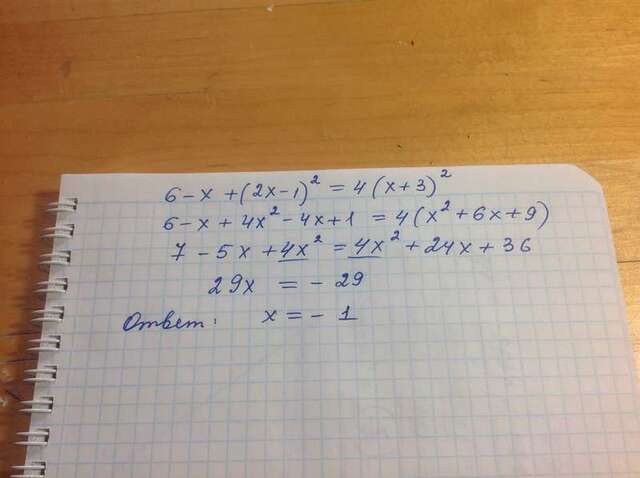 6 - x + (2x - 1)² = 4 (x + 3)²
6 - x + 4x² - 4x + 1 = 4(x² + 6x + 9)
7 - 5x + 4x² = 4x² + 24x + 36
29x = - 29
Ответ: x = - 1